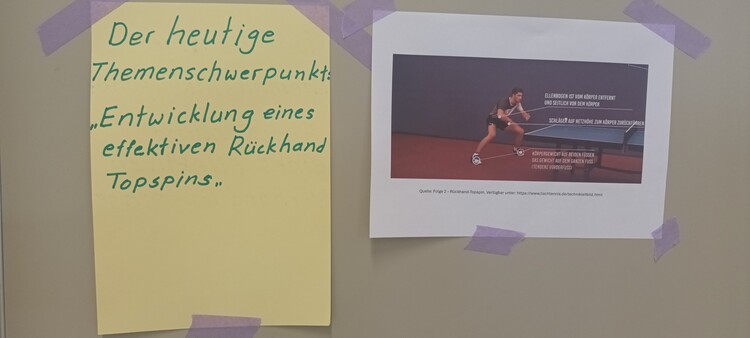 Der heutige
Themenschwerpunkt:
„Entwicklung eines
effektiven Rückhand
Topspins„
ELLENBOGEN IST VOM KÖRPER ENTFERNT
UND SEITLICH VOR DEM KÖRPER
SCHLÄGER AUF NETZHÖHE ZUM KÖRPER ZURÜCKFÜHREN
KÖRPERGEWICHT AUF BEIDEN FÜSSEN,
DAS GEWICHT AUF DEM GANZEN FUSS
(TENDENZ VORDERFUSS)
Quelle: Folge 2 – Rückhand-Topspin. Verfügbar unter: